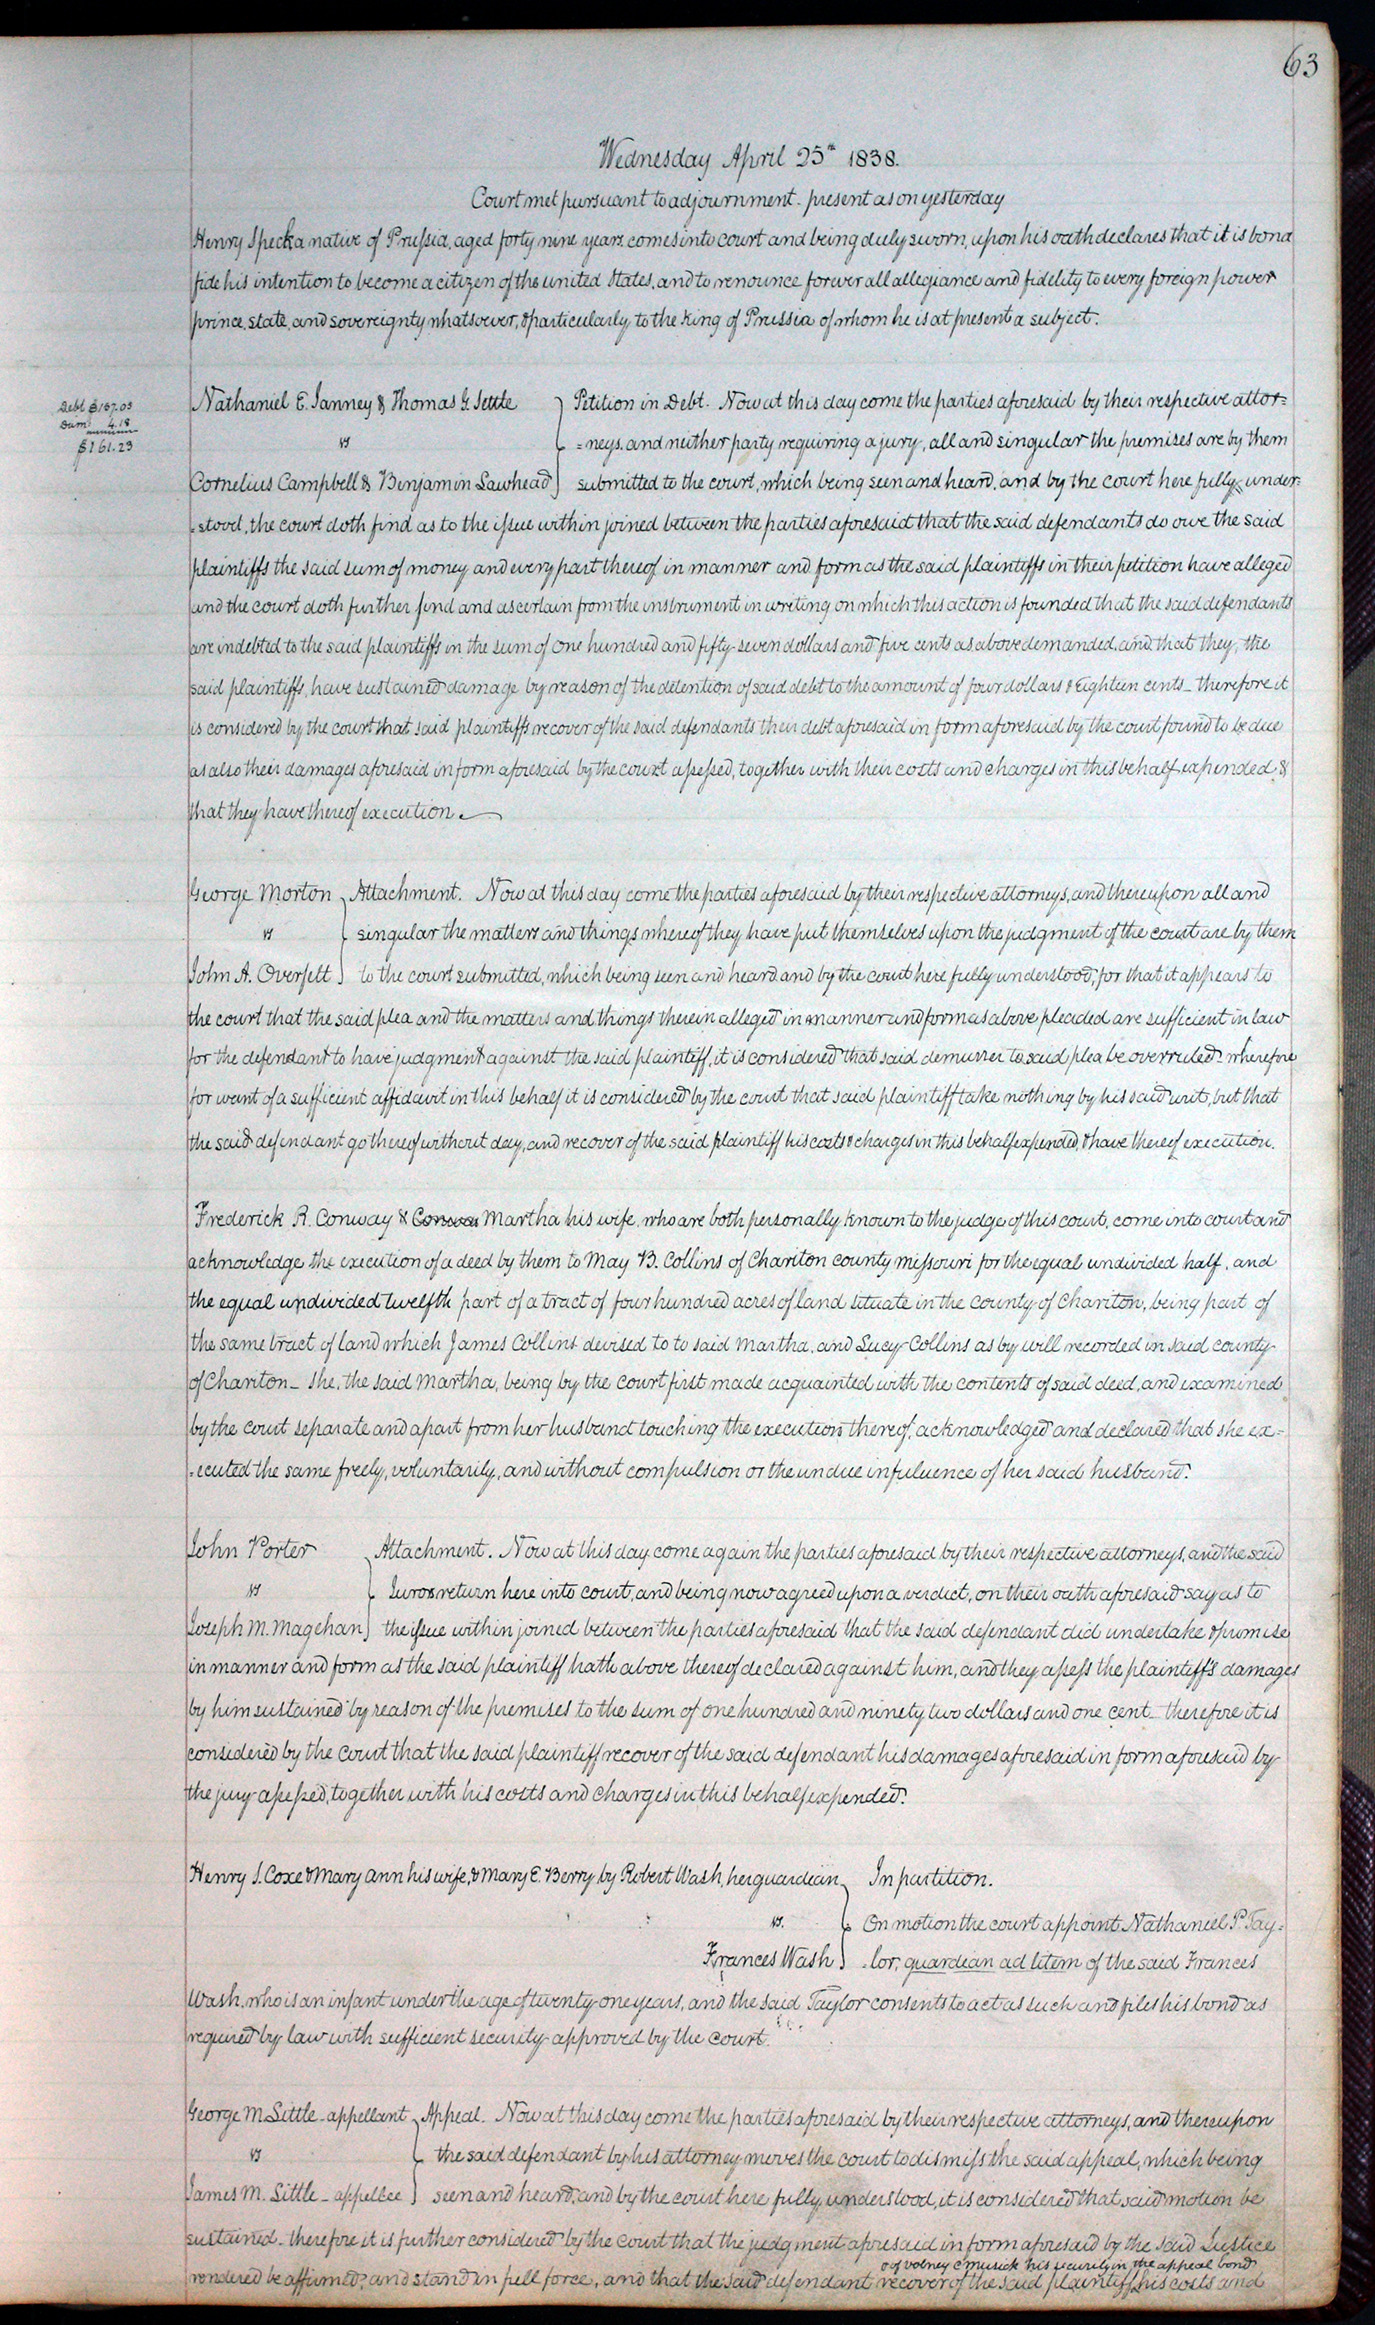 63
Wednesday April 25th 1838.
Court met pursuant to adjournment. present as on yesterday
Henry Specka native of Prussia, aged forty nine years comes into court and being duly sworn, upon his oath declares that it is bona
fide his intention to become a citizen of the united States, and to renounce forever all allegiance and fidelity to every foreign power
prince, state, and sovereignty whatsoever, & particularly to the King of Prussia of whom he is at present a subject.
Nathaniel E. Janney & Thomas G. Settle } Petition in Debt. Now at this day come the parties aforesaid by their respective attor=
Debt $157.05
Dam: 4.18
$161.23
vs =neys, and neither party requiring a jury, all and singular the premises are by them
Cornelius Campbell & Benjamin Lawhead submitted to the court, which being seen and heard, and by the court here fully under=
=stood, the court doth find as to the issue within joined between the parties aforesaid that the said defendants do owe the said
plaintiffs the said sum of money and every part thereof in manner and form as the said plaintiffs in their petition have alleged
and the court doth further find and ascertain from the instrument in writing on which this action is founded that the said defendants
are indebted to the said plaintiffs in the sum of one hundred and fifty-seven dollars and five cents as above demanded, and that they, the
said plaintiffs, have sustained damage by reason of the detention of said debt to the amount of four dollars & Eighteen cents_ therefore it
is considered by the court that said plaintiffs recover of the said defendants their debt aforesaid in form aforesaid by the court found to be due
as also their damages aforesaid in form aforesaid by the court assessed, together with their costs and charges in this behalf expended, &
that they have thereof execution.
George Morton } Attachment. Now at this day come the parties aforesaid by their respective attorneys, and thereupon all and
vs singular the matters and things whereof they have put themselves upon the judgment of the court are by them
John A. Overfelt to the court submitted, which being seen and heard and by the court here fully understood, for that it appears to
the court that the said plea and the matters and things therein alleged in manner and form as above pleaded are sufficient in law
for the defendant to have judgment against the said plaintiff, it is considered that said demurrer to said plea be overruled. wherefore
for want of a sufficient affidavit in this behalf it is considered by the court that said plaintiff take nothing by his said writ, but that
the said defendant go thereof without day, and recover of the said plaintiff his costs & charges in this behalf expended, & have thereof execution.
Frederick R. Conway & Conway Martha his wife, who are both personally known to the judge of this court, come into court and
acknowledge the execution of a deed by them to May B. Collins of Chariton county missouri for the equal undivided half, and
the equal undivided twelfth part of a tract of four hundred acres of land situate in the county of Chariton, being part of
the same tract of land which James Collins devised to to said Martha, and Lucy Collins as by will recorded in said county
of Chariton_ she, the said Martha, being by the court first made acquainted with the contents of said deed, and examined
by the court separate and apart from her husband touching the execution thereof, acknowledged and declared that she ex=
=ecuted the same freely, voluntarily, and without compulsion or the undue infuluence of her said husband.
John Porter } Attachment. Now at this day come again the parties aforesaid by their respective attorneys, and the said
vs Jurors return here into court, and being now agreed upon a verdict, on their oath aforesaid say as to
Joseph M. Magehan the issue within joined between the parties aforesaid that the said defendant did undertake & promise
in manner and form as the said plaintiff hath above thereof declared against him, and they assess the plaintiff's damages
by him sustained by reason of the premises to the sum of one hundred and ninety two dollars and one cent_ therefore it is
considered by the court that the said plaintiff recover of the said defendant his damages aforesaid in form aforesaid by
the jury assessed, together with his costs and charges in this behalf expended.
Henry S. Coxe & Mary Ann his wife, & Mary E. Berry, by Robert Wash, her guardian } In partition.
vs. On motion the court appoint Nathaniel P. Tay=
Frances Wash =lor, guardian ad litem of the said Frances
Wash, who is an infant under the age of twenty-one years, and the said Taylor consents to act as such and files his bond as
required by law with sufficient security approved by the court.
George M. Settle_appellant } Appeal. Now at this day come the parties aforesaid by their respective attorneys, and thereupon
vs the said defendant by his attorney moves the court to dismiss the said appeal, which being
James M. Little_appellee seen and heard, and by the court here fully understood, it is considered that said motion be
sustained_ therefore it is further considered by the court that the judgment aforesaid in form aforesaid by the said Justice
& of Volney C Musick his security in the appeal bond
rendered be affirmed, and stand in full force, and that the said defendant recover of the said plaintiff, his costs and